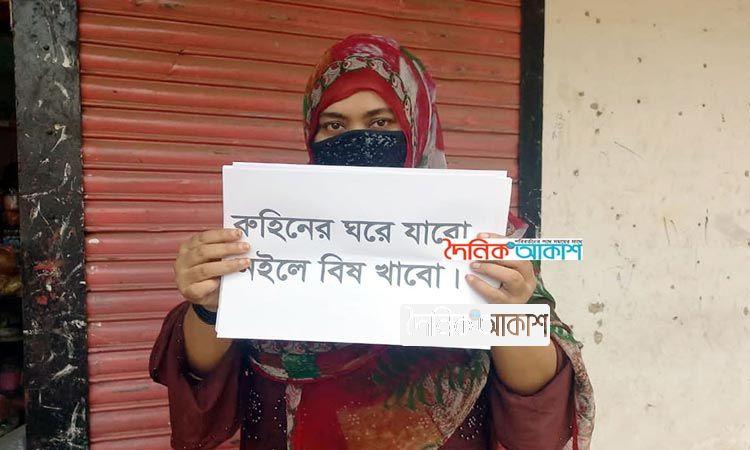 রুহিনের ঘরে যাবো
নইলে বিষ খাবো।
পরিবর্তনের পথে সময়ের সাথে
দৈনিক আকাশ
দৈনিক আকাশ